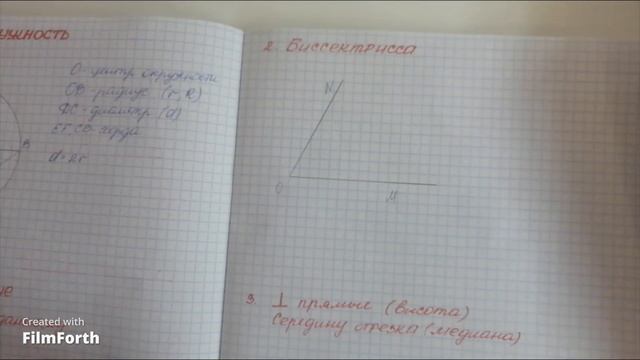 УЖНОСТЬ
O - центр окружности
OB - радиус (r, R)
DC - диаметр (d)
EF, CD - хорда
d = 2r
B
2. Биссектрисса
N
O
M
3. ⊥ прямые (высота)
Середину отрезка (медиана)
Created with
FilmForth